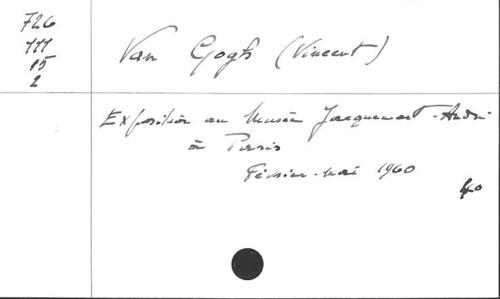 726
111
15
2
Van Gogh (Vincent)
Exposition au Musée Jacquemart-André
à Paris
Février-mai 1960